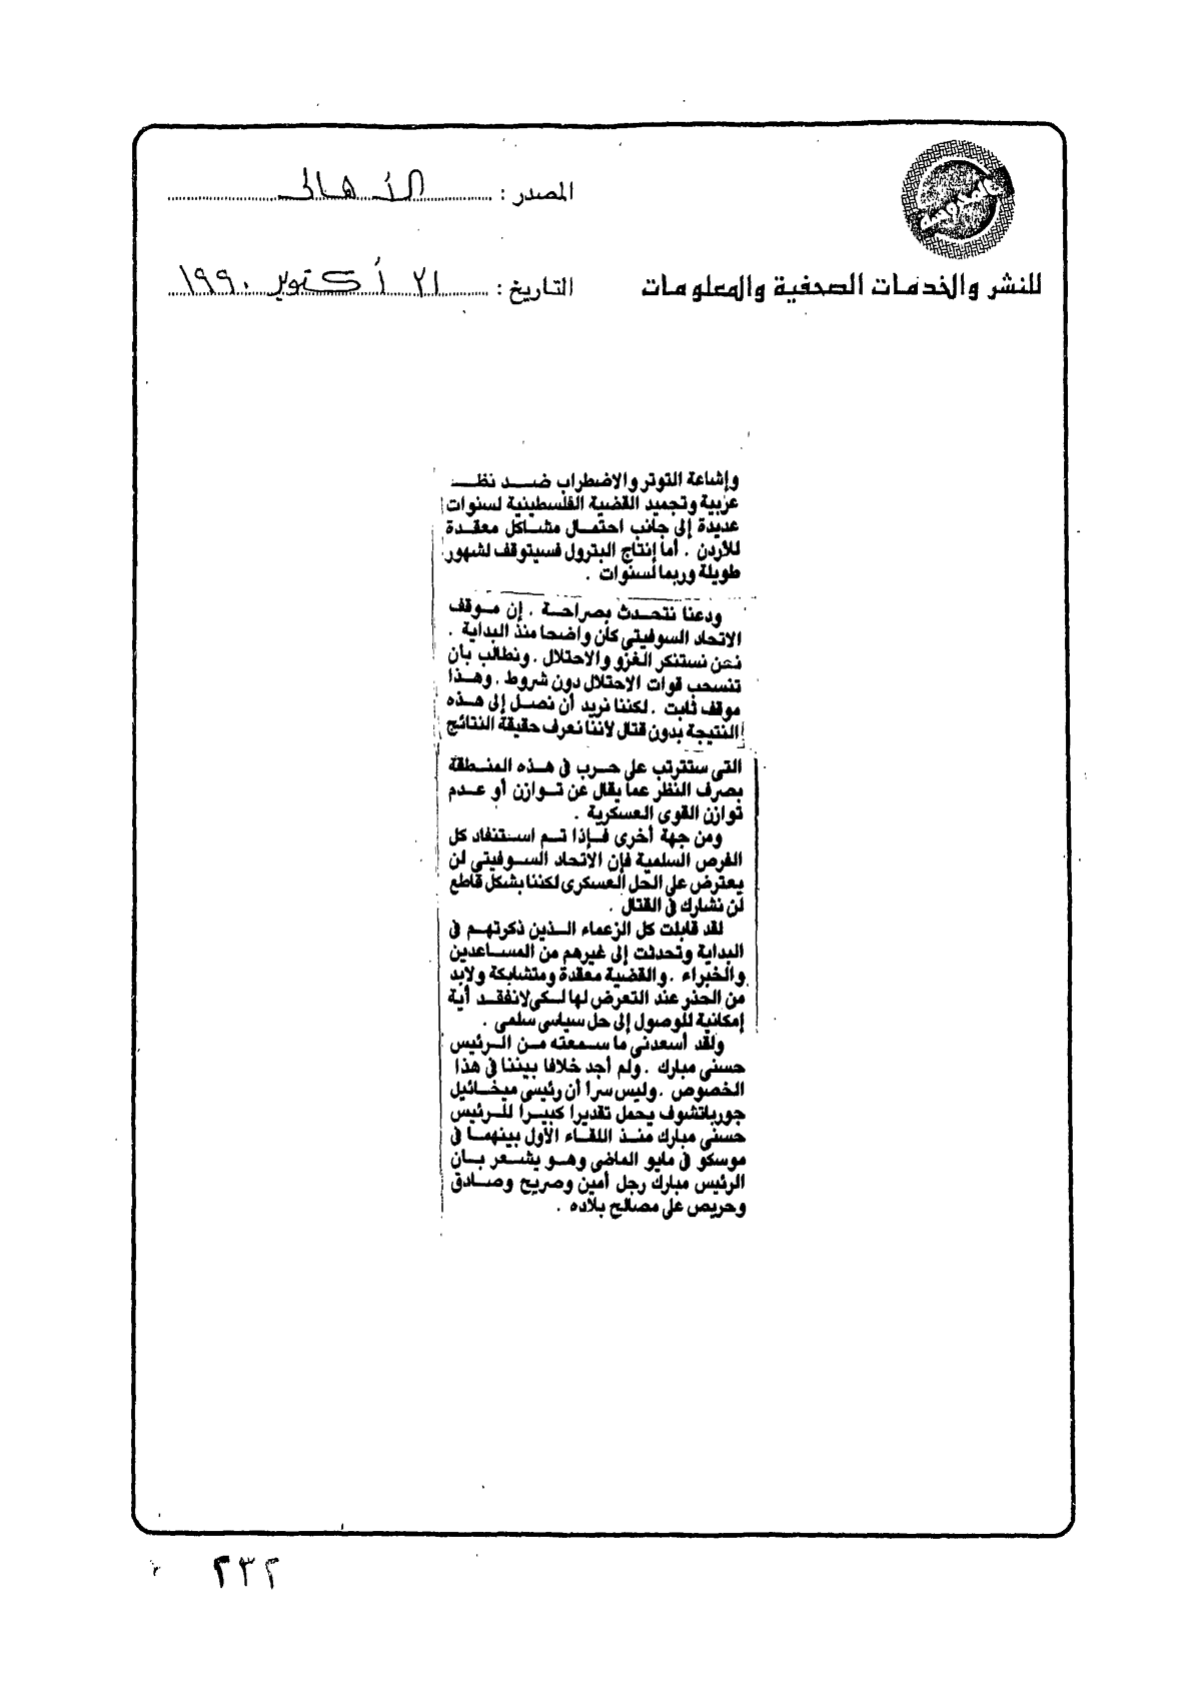 المصدر : الأهالى
للنشر والخدمات الصحفية والمعلومات
التاريخ : ٢١ أكتوبر ١٩٩٠
وإشاعة التوتر والاضطراب ضد نظـ
عربية وتجميد القضية الفلسطينية لسنوات
عديدة إلى جانب احتمال مشاكل معقدة
للأردن . أما إنتاج البترول فسيتوقف لشهور
طويلة وربما لسنوات .
ودعنا نتحدث بصراحة . إن موقف
الاتحاد السوفيتى كان واضحا منذ البداية .
نحن نستنكر الغزو والاحتلال . ونطالب بأن
تنسحب قوات الاحتلال دون شروط . وهذا
موقف ثابت . لكننا نريد أن نصل إلى هذه
النتيجة بدون قتال لأننا نعرف حقيقة النتائج
التى ستترتب على حرب فى هذه المنطقة
بصرف النظر عما يقال عن توازن أو عدم
توازن القوى العسكرية .
ومن جهة أخرى فإذا تم استنفاد كل
الفرص السلمية فإن الاتحاد السوفيتى لن
يعترض على الحل العسكرى لكننا بشكل قاطع
لن نشارك فى القتال .
لقد قابلت كل الزعماء الذين ذكرتهم فى
البداية وتحدثت إلى غيرهم من المساعدين
والخبراء . والقضية معقدة ومتشابكة ولابد
من الحذر عند التعرض لها لكى لانفقد أية
إمكانية للوصول إلى حل سياسى سلمى .
ولقد أسعدنى ما سمعته من الرئيس
حسنى مبارك . ولم أجد خلافا بيننا فى هذا
الخصوص . وليس سرا أن رئيسى ميخائيل
جورباتشوف يحمل تقديرا كبيرا للرئيس
حسنى مبارك منذ اللقاء الأول بينهما فى
موسكو فى مايو الماضى وهو يشعر بأن
الرئيس مبارك رجل أمين وصريح وصادق
وحريص على مصالح بلاده .
٢٣٢